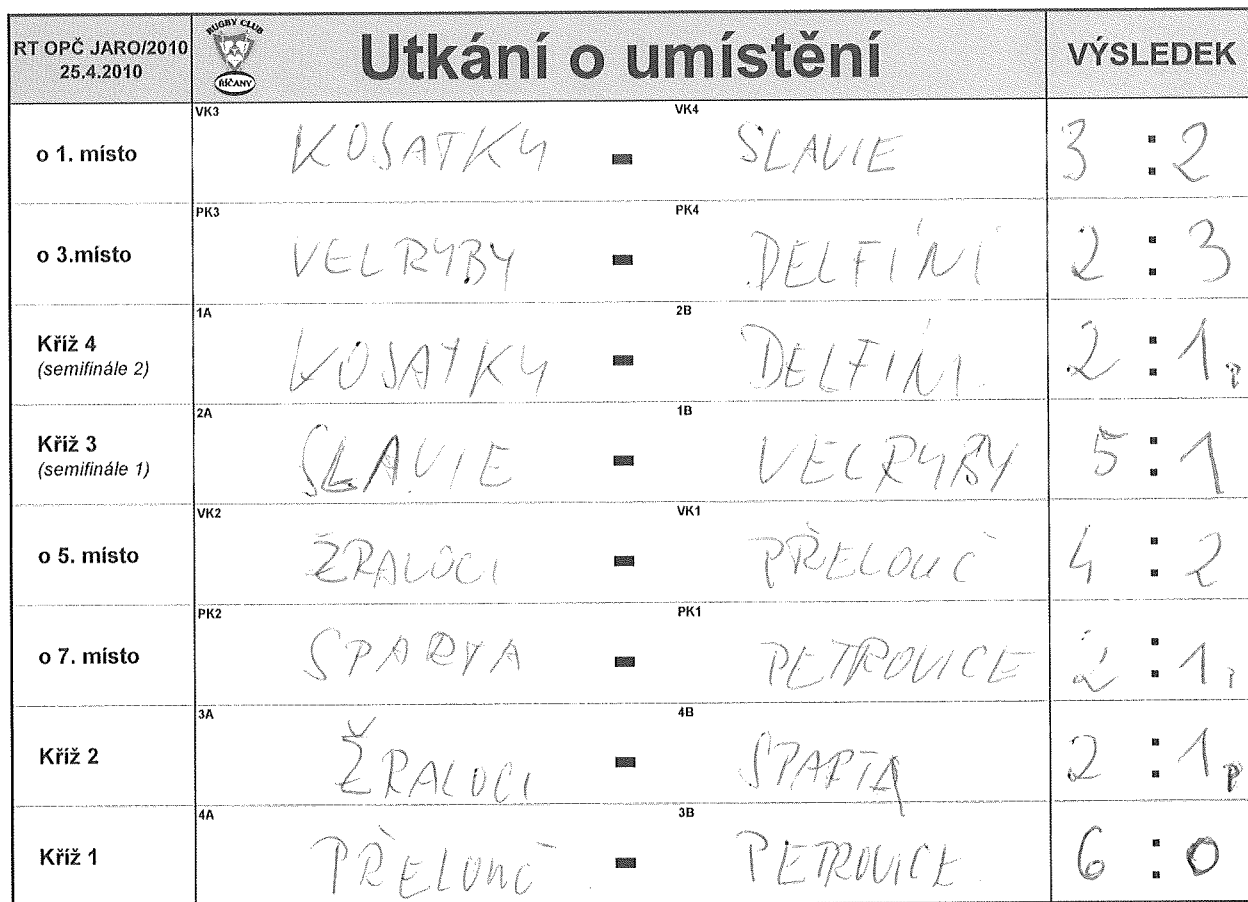 RT OPČ JARO/2010
25.4.2010
RUGBY CLUB
ŘÍČANY
Utkání o umístění
VÝSLEDEK
o 1. místo
VK3
KOSATKY - VK4 SLAVIE
3 : 2
o 3.místo
PK3
VELRYBY - PK4 DELFÍNI
2 : 3
Kříž 4
(semifinále 2)
1A
KOSATKY - 2B DELFÍNI
2 : 1p
Kříž 3
(semifinále 1)
2A
SLAVIE - 1B VELRYBY
5 : 1
o 5. místo
VK2
ŽRALOCI - VK1 PŘELOUČ
4 : 2
o 7. místo
PK2
SPARTA - PK1 PETROVICE
2 : 1p
Kříž 2
3A
ŽRALOCI - 4B SPARTA
2 : 1p
Kříž 1
4A
PŘELOUČ - 3B PETROVICE
6 : 0